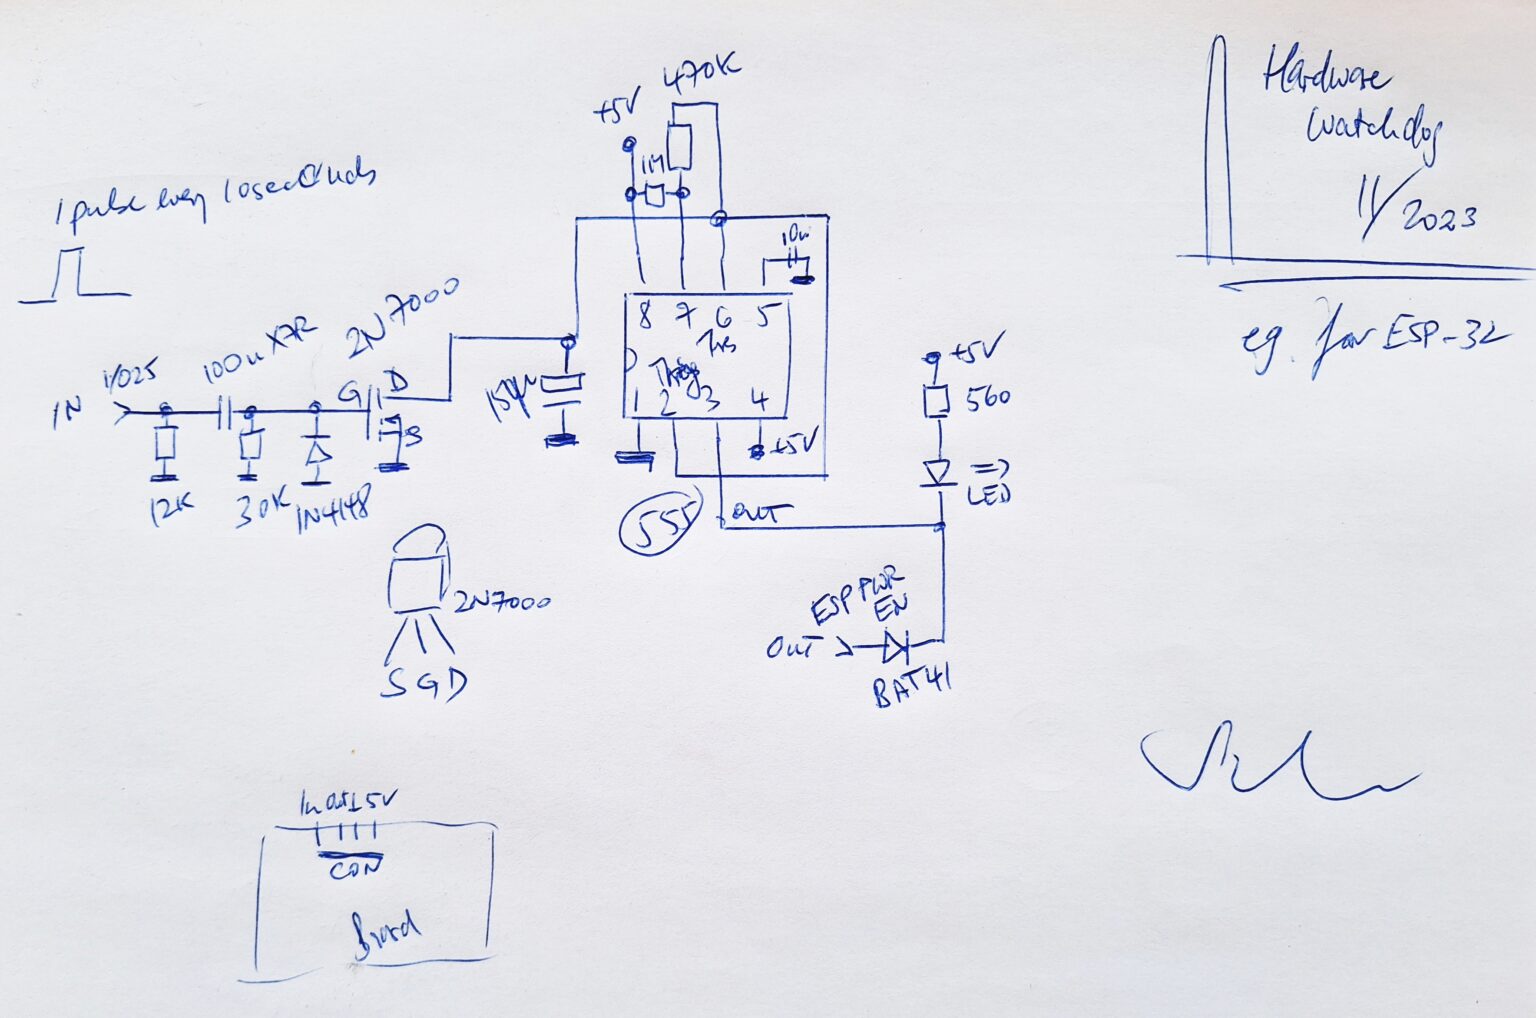 Hardware
Watchdog
11/2023
eg. for ESP-32
1 pulse every 10 seconds
470K
+5V
1M
10n
8 7 6 5
1 2 3 4
+5V
555
OUT
150µ
2N7000
G D
S
100n X7R
IO25
IN
12K
30K
1N4148
+5V
560
LED
ESP PWR
EN
OUT
BAT41
2N7000
S G D
In Out ⊥ 5V
CON
Board